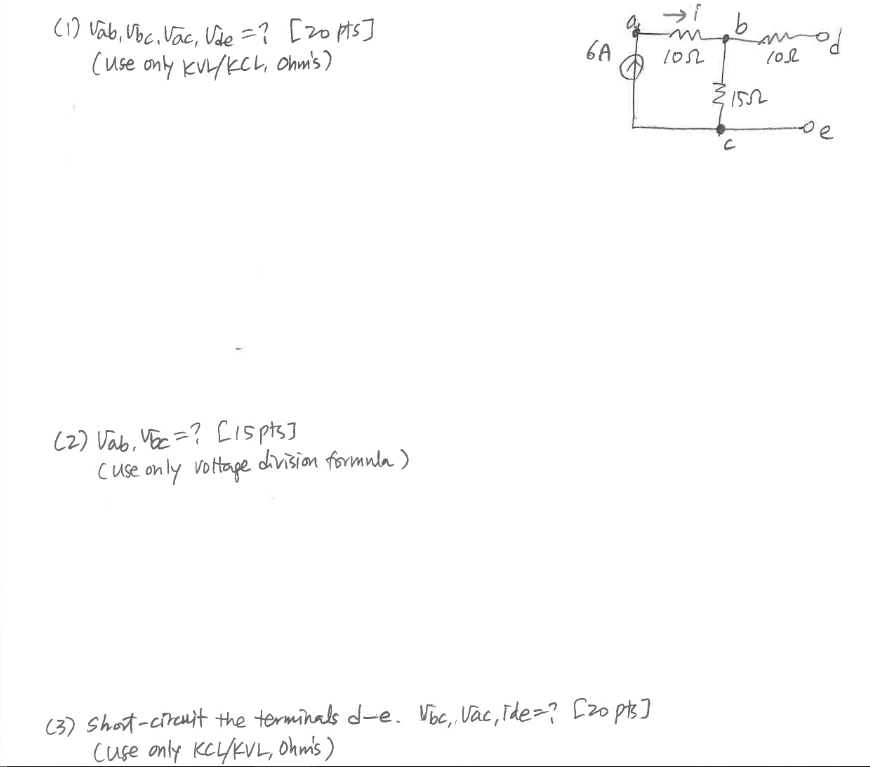 (1) Vab, Vbc, Vac, Vde = ? [20 pts]
(Use only KVL/KCL, Ohm's)
a → i b d
6A 10Ω 10Ω
15Ω
c e
(2) Vab, Vbc = ? [15 pts]
(use only voltage division formula)
(3) Short-circuit the terminals d-e. Vbc, Vac, Ide = ? [20 pts]
(use only KCL/KVL, Ohm's)